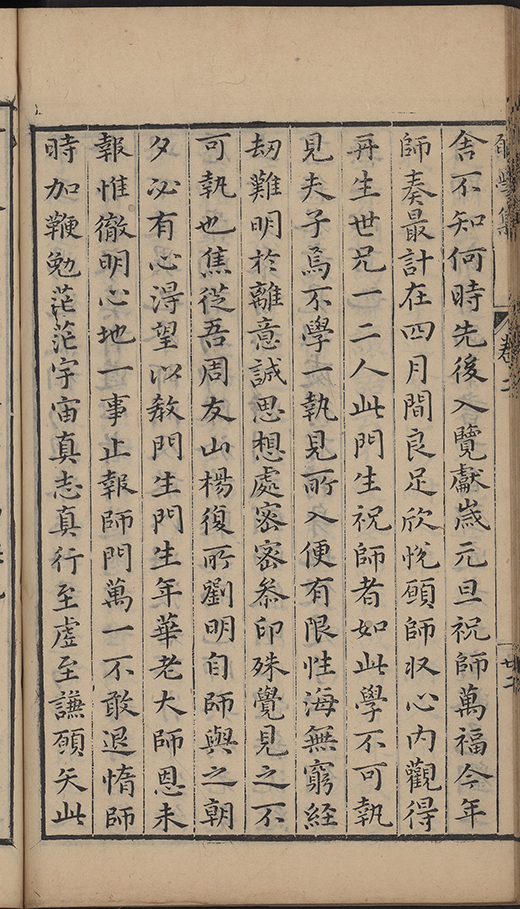 卷二
廿二
舍不知何時先後入覽獻歲元旦祝師萬福今年
師奏最計在四月間良足欣悅願師収心內觀得
再生世兄一二人此門生祝師者如此學不可執
見夫子焉不學一執見所入便有限性海無窮經
劫難明於離意誠思想處密密叅印殊覺見之不
可執也焦從吾周友山楊復所劉明自師與之朝
夕必有心淂望以教門生門生年華老大師恩未
報惟徹明心地一事止報師門萬一不敢退惰師
時加鞭勉茫茫宇宙真志真行至虛至謙願矢此